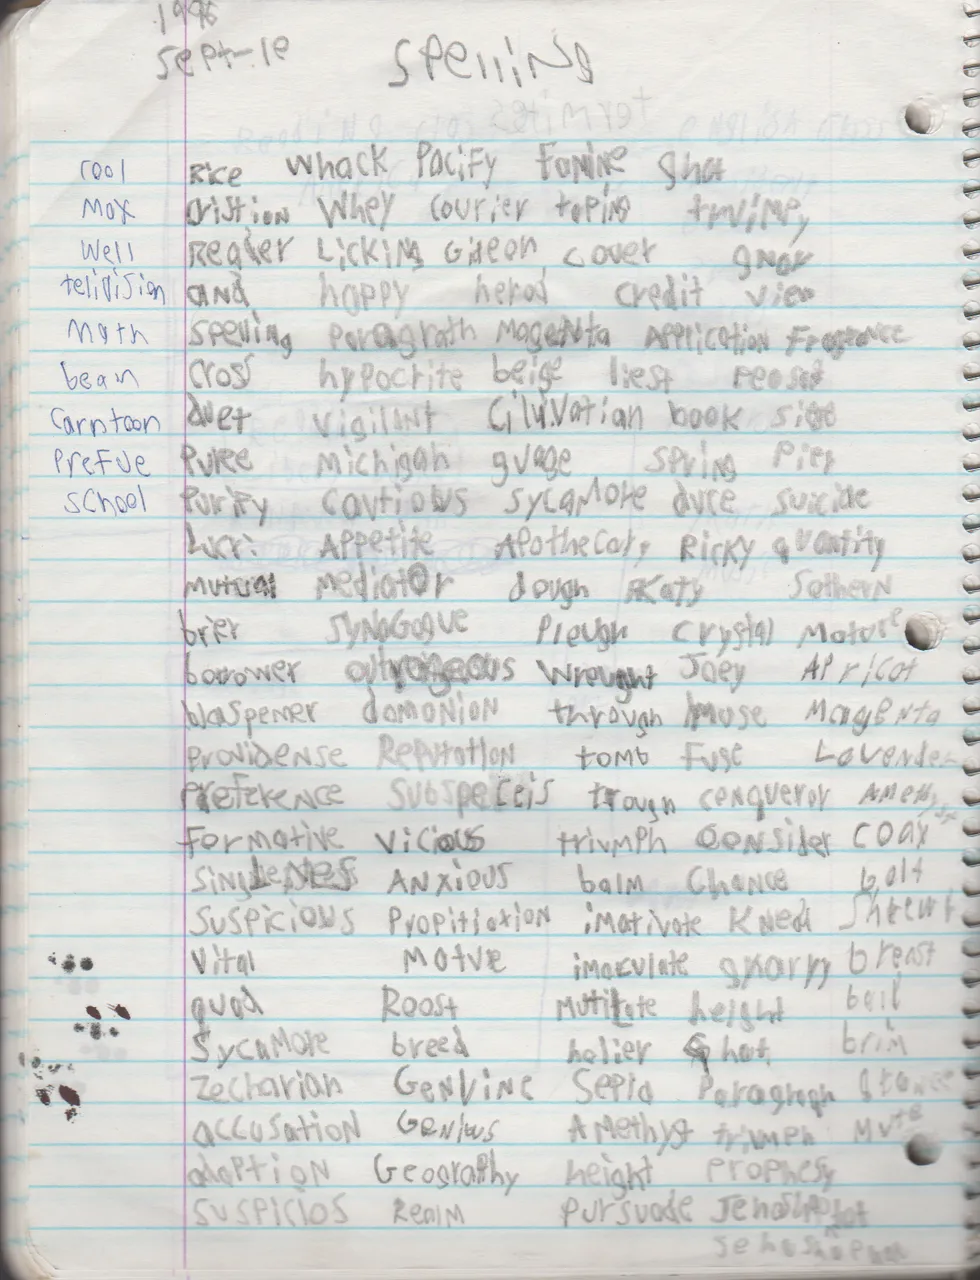 1996
Sept-10
Spelling
cool Rice Whack Pacify Famine
Max Cristion Whey Courier toping
Well Reader Licking Gideon cover gnaw
telivision and happy herod credit view
Math Spelling Paragrath Magenta Application
bean Cross hypocrite beige liest
Carntoon duet vigilant Ciluvation book
Prefue Puree Michigan guage Spring Pier
School Purify Cautious Sycamore duce suicide
Appetite Apothecary Ricky quantity
mutual mediator dough Katy Sothern
brier SyNaGogue Plough Crystal Mature
borower outrageous Wrought Joey APricot
blaspemer domonion through Muse Magenta
Providense Reputation tomb Fuse Lavender
Preference trough conqueror
Formative Vicious triumph Consider coax
SingleNess ANxious balm Chance
Suspicious Propitiation imotivate
Vital imaculate breast
quad Roost Mutilate height bail
Sycamore breed holier brim
Zecharian Genuine Sepia Paragraph
accusation Genius Amethyst triumph Mute
adoption Geography height Prophesy
suspicios Realm Pursuade